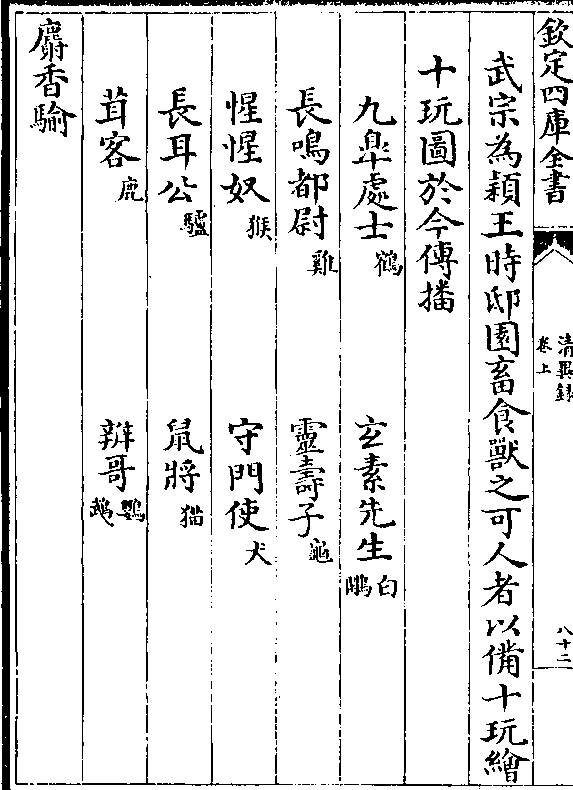 欽定四庫全書
清異録
卷上
八十二
武宗為潁王時邸園畜食獸之可人者以備十玩繪
十玩圖於今傳播
九臯處士鶴 玄素先生白鷴
長鳴都尉雞 靈壽子龜
惺惺奴猴 守門使犬
長耳公驢 鼠將猫
茸客鹿 辨哥鸚鵡
麝香騟